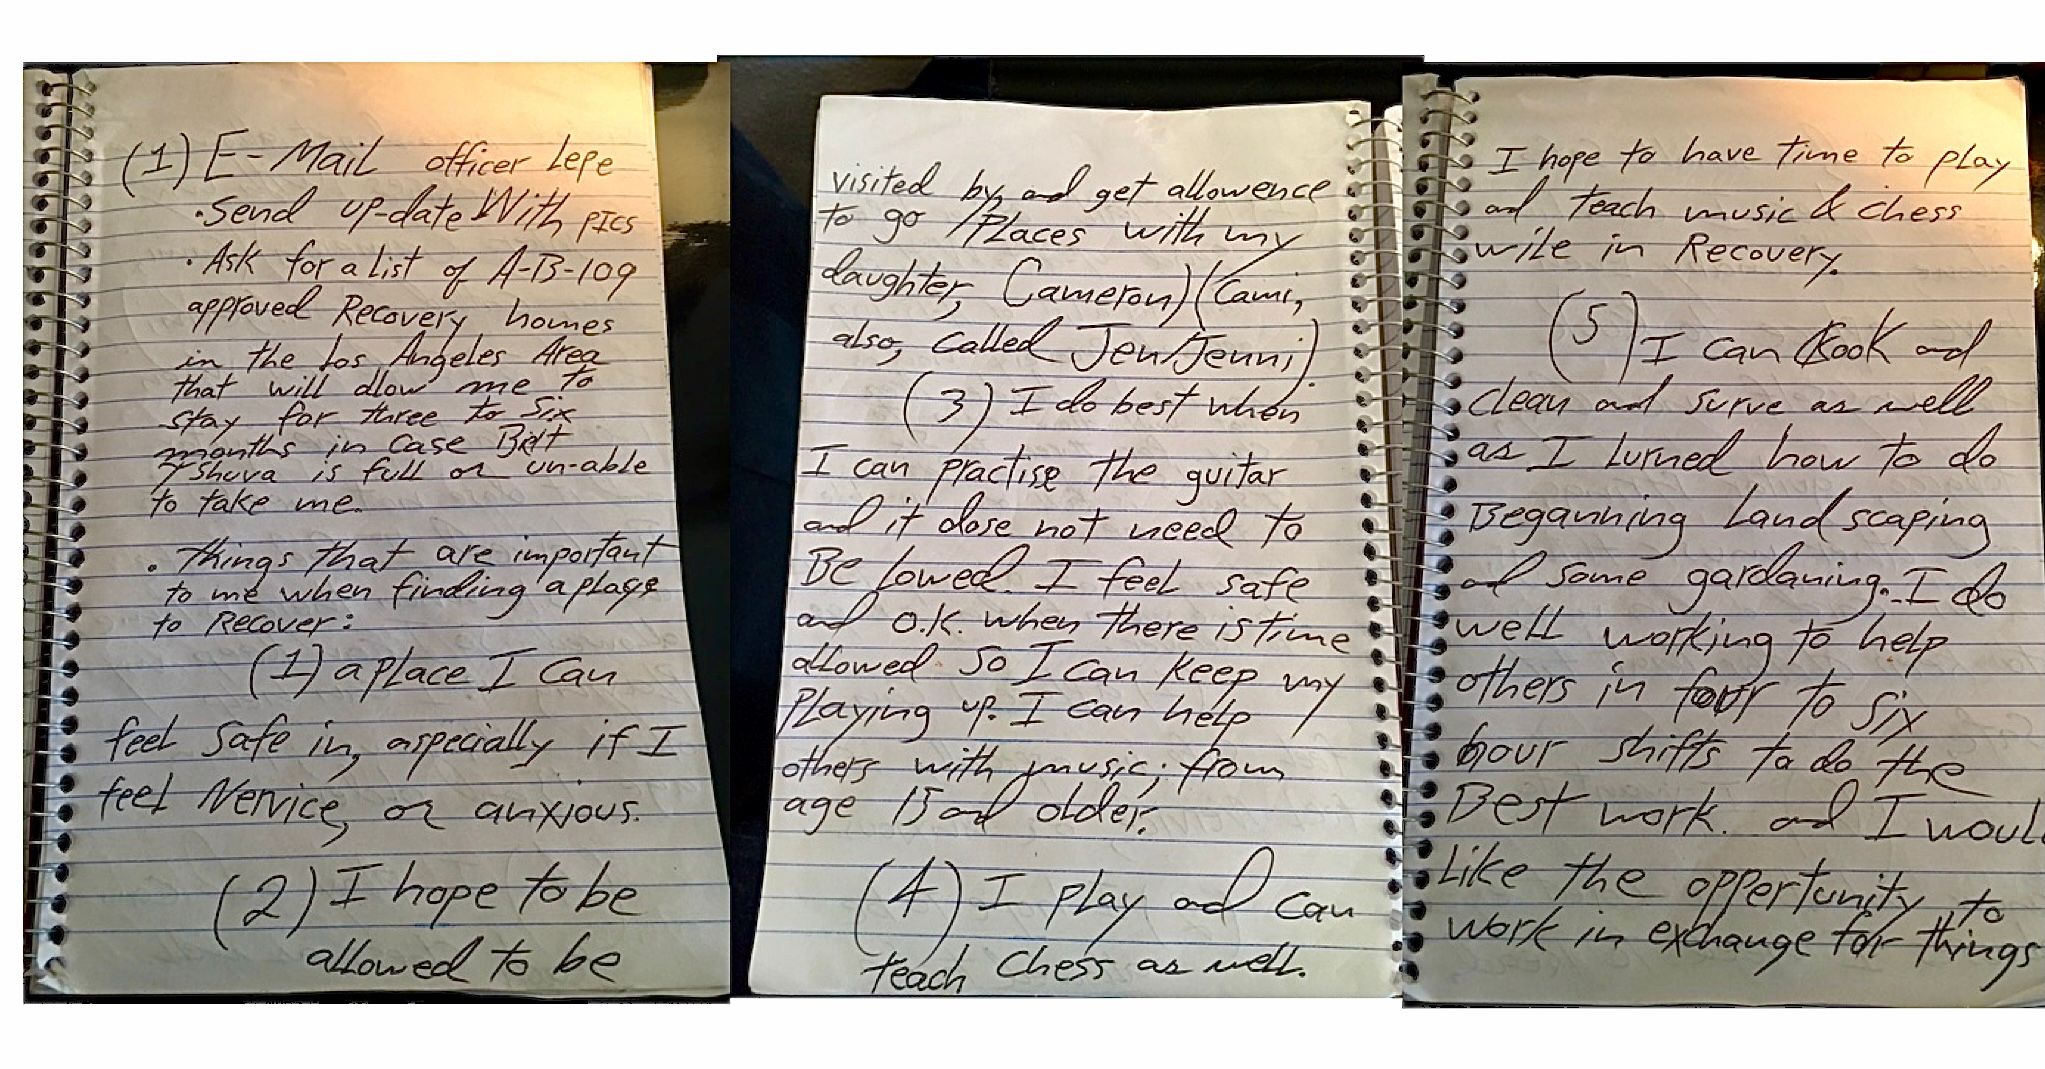 (1) E-Mail officer Lepe
• Send up-date With pics
• Ask for a list of A-B-109
approved Recovery homes
in the Los Angeles Area
that will allow me to
stay for three to Six
months in case Biet
Tshuva is full or un-able
to take me.
• things that are important
to me when finding a place
to Recover:
(1) a place I can
feel safe in, aspecially if I
feel Nervice, or anxious.
(2) I hope to be
allowed to be
visited by, and get allowence
to go /Places with my
daughter, Cameron) (Cami,
also, called Jen/Jenni).
(3) I do best when
I can practise the guitar
and it dose not need to
Be lowed. I feel safe
and O.K. when there is time
allowed so I can keep my
playing up. I can help
others with music; from
age 15 and older.
(4) I play and can
teach Chess as well.
I hope to have time to play
and teach music & chess
wile in Recovery.
(5) I can Kook and
clean and surve as well
as I lurned how to do
Beganning Landscaping
and some gardaning. I do
well working to help
others in four to six
hour shifts to do the
Best work. and I would
Like the oppertunity to
work in exchange for things